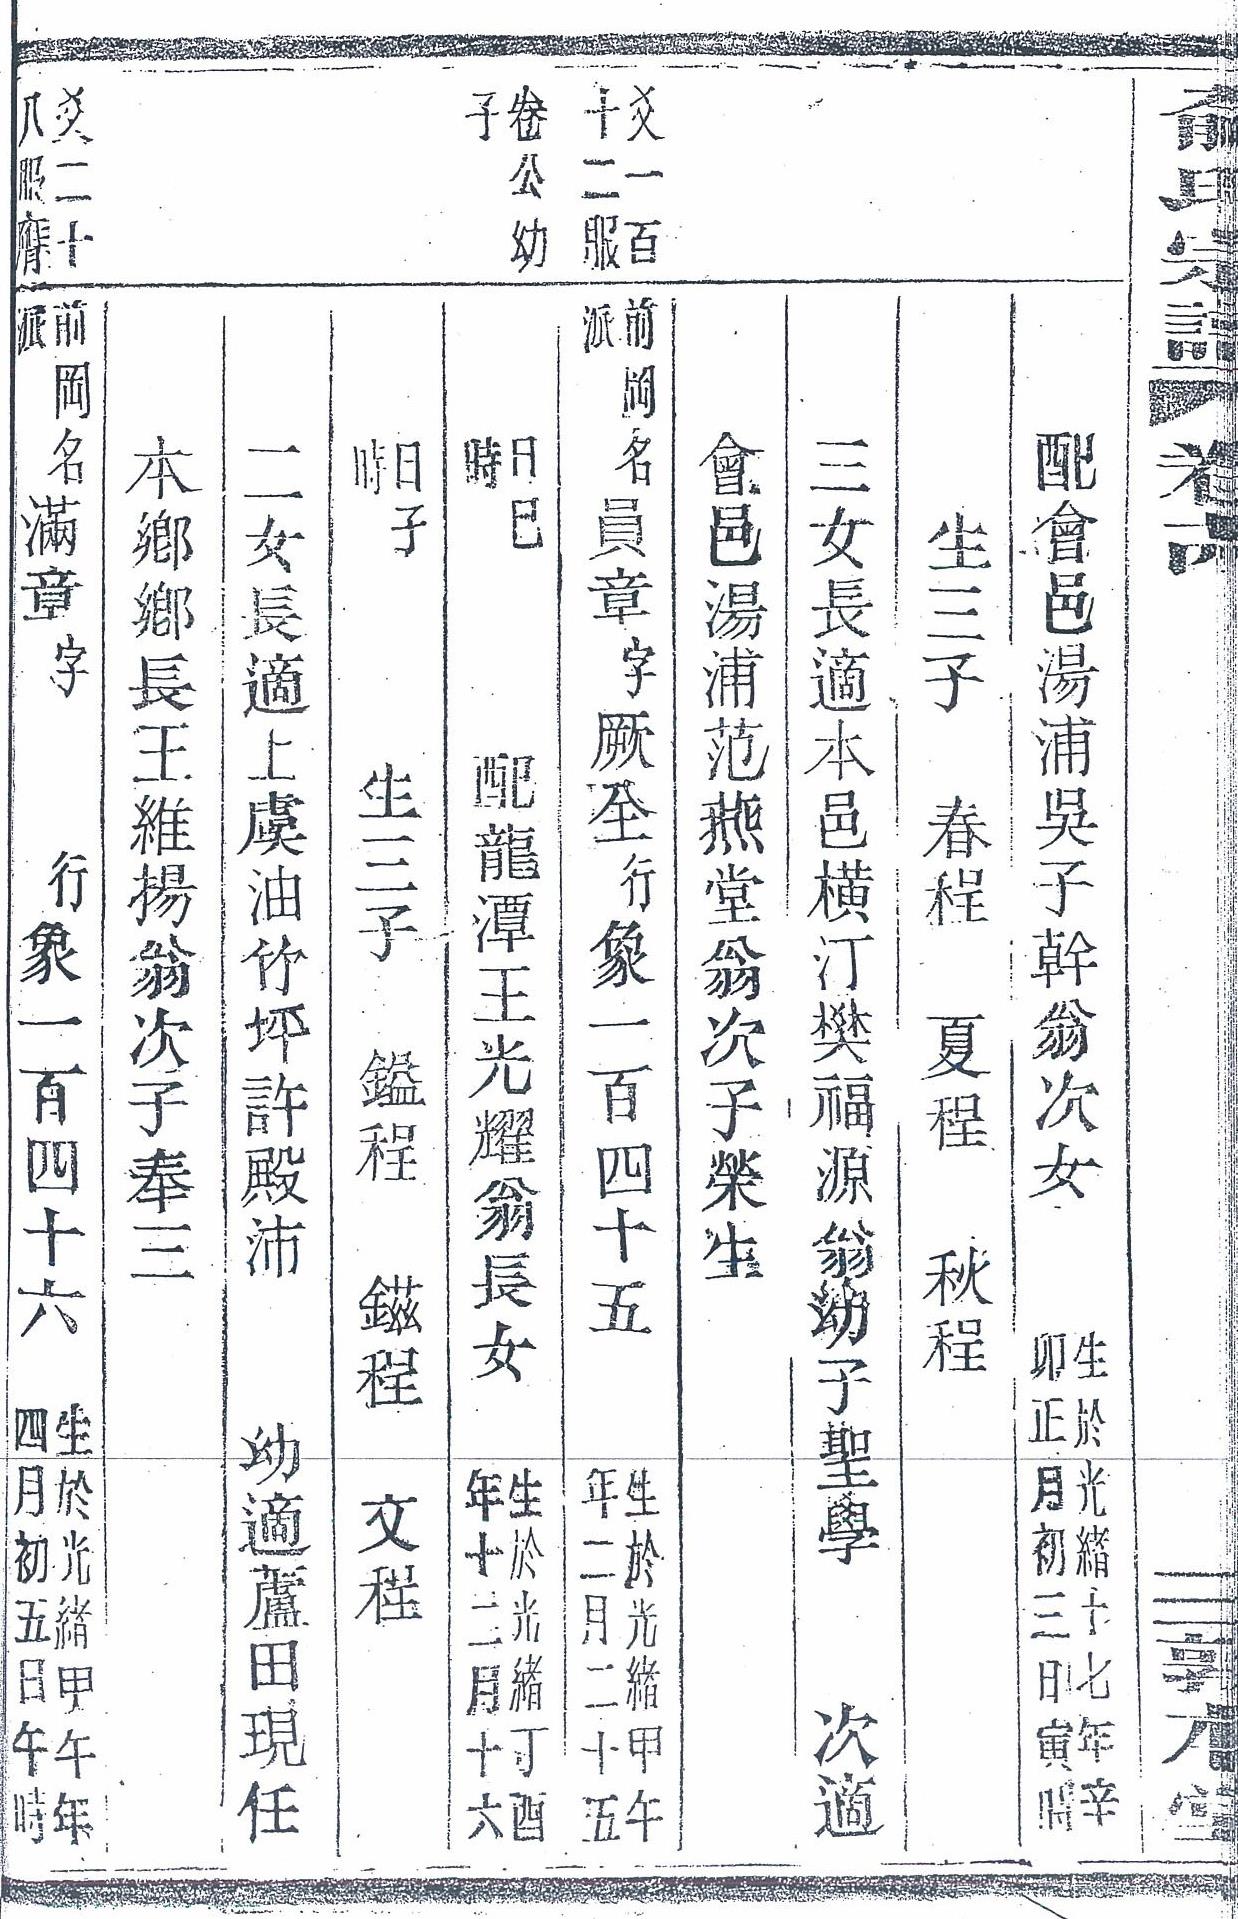 俞氏宗譜 卷六
配會邑湯浦吳子幹翁次女 生於光緒十七年辛卯正月初三日寅時
生三子 春程 夏程 秋程
三女長適本邑橫汀樊福源翁幼子聖學 次適
會邑湯浦范燕堂翁次子榮生
爻一百十二服
前岡派名員章字厥全行象一百四十五 生於光緒甲午年二月二十五
卷公幼子
日巳時 配龍潭王光耀翁長女 生於光緒丁酉年十二月十六
日子時 生三子 鎰程 鎡程 文程
二女長適上虞油竹坪許殿沛 幼適蘆田現任
本鄉鄉長王維揚翁次子奉三
爻二十八服膺
前岡派名滿章字 行象一百四十六 生於光緒甲午年四月初五日午時